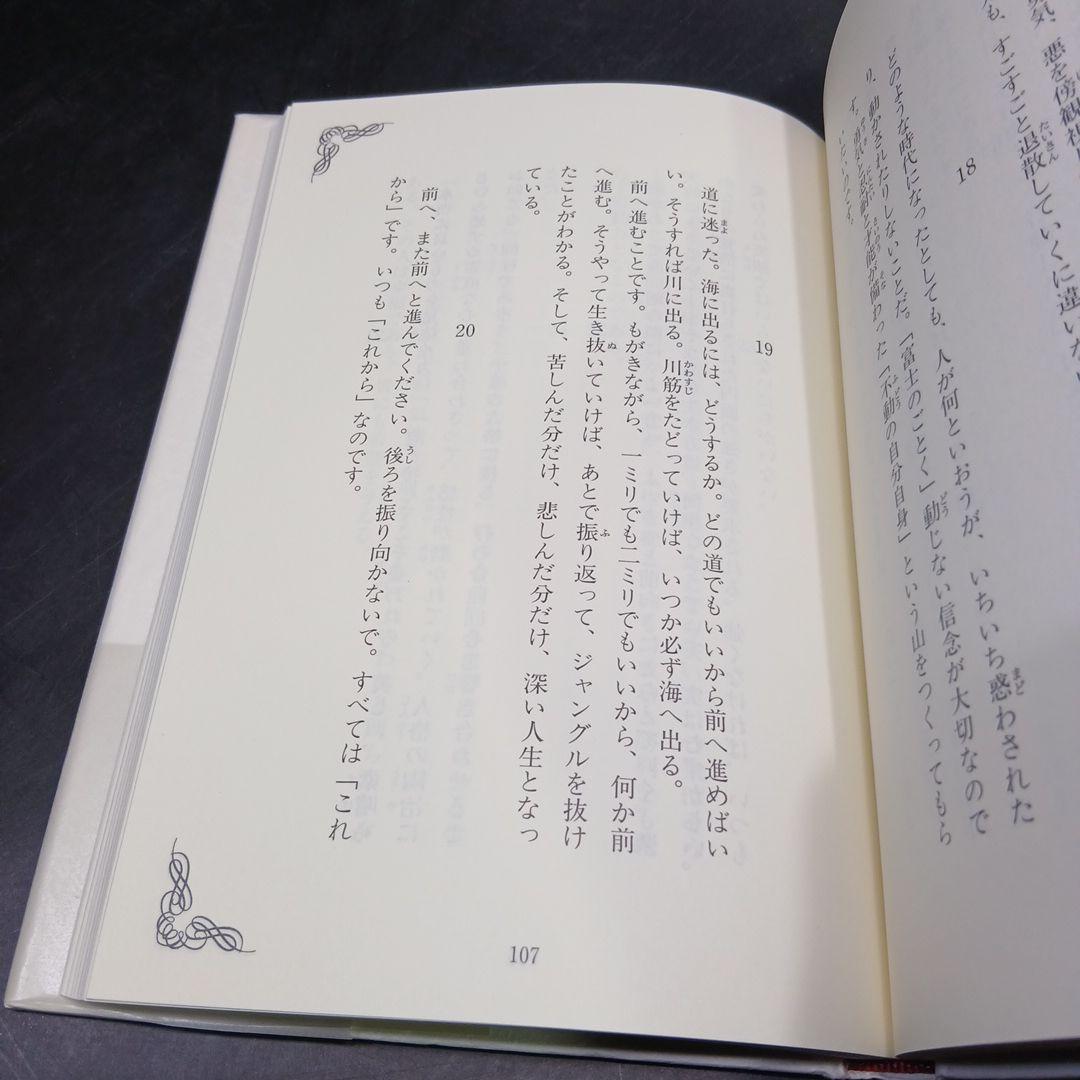 気、悪を傍観
も、すごすごと退散していくに違いな
18
どのような時代になったとしても、人が何といおうが、いちいち惑わされた
り、動かされたりしないことだ。「富士のごとく」動じない信念が大切なので
す。勇気と
才能が備わった「不動の自分自身」という山をつくってもら
いたいのです。
19
道に迷った。海に出るには、どうするか。どの道でもいいから前へ進めばい
い。そうすれば川に出る。川筋をたどっていけば、いつか必ず海へ出る。
前へ進むことです。もがきながら、一ミリでも二ミリでもいいから、何か前
へ進む。そうやって生き抜いていけば、あとで振り返って、ジャングルを抜け
たことがわかる。そして、苦しんだ分だけ、悲しんだ分だけ、深い人生となっ
ている。
20
前へ、また前へと進んでください。後ろを振り向かないで。すべては「これ
から」です。いつも「これから」なのです。
107